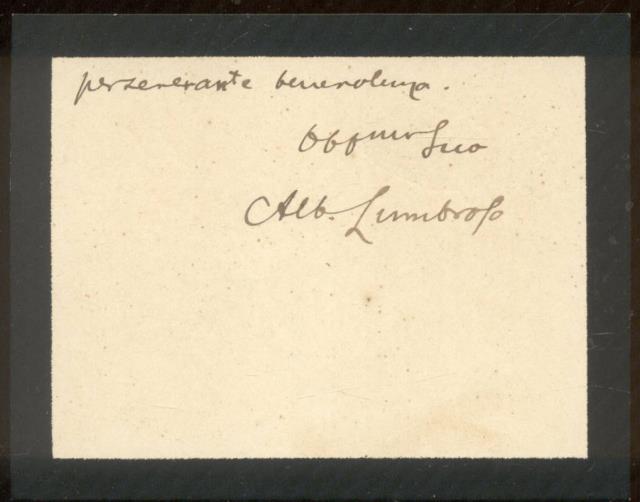 perseverante benevolenza.
Obbmo Suo
Alb. Lumbroso